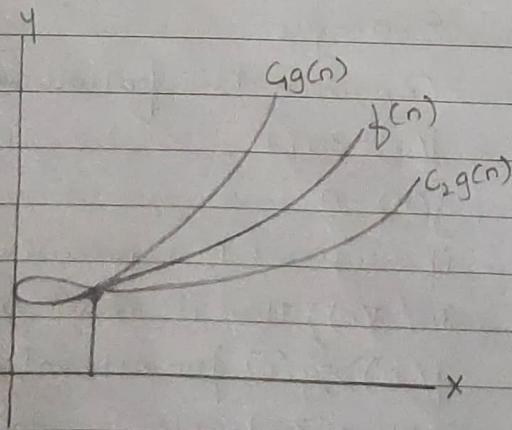 y
C1g(n)
f(n)
C2g(n)
x